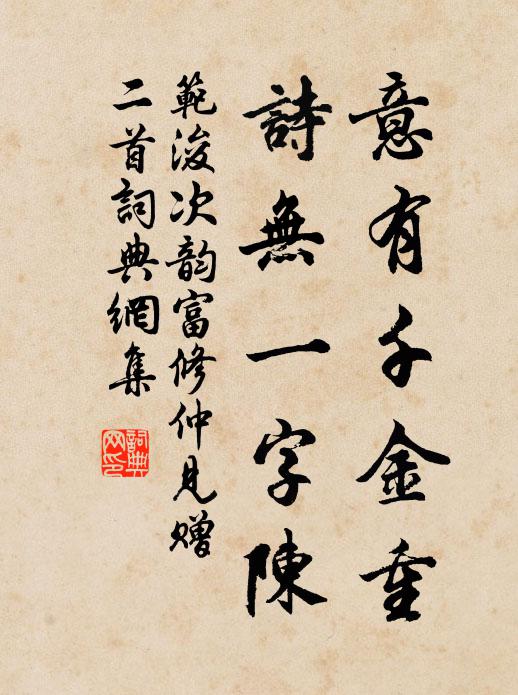 意有千金重
詩無一字陳
範浚次韵富修仲見贈
二首詞典網集
詞典网印